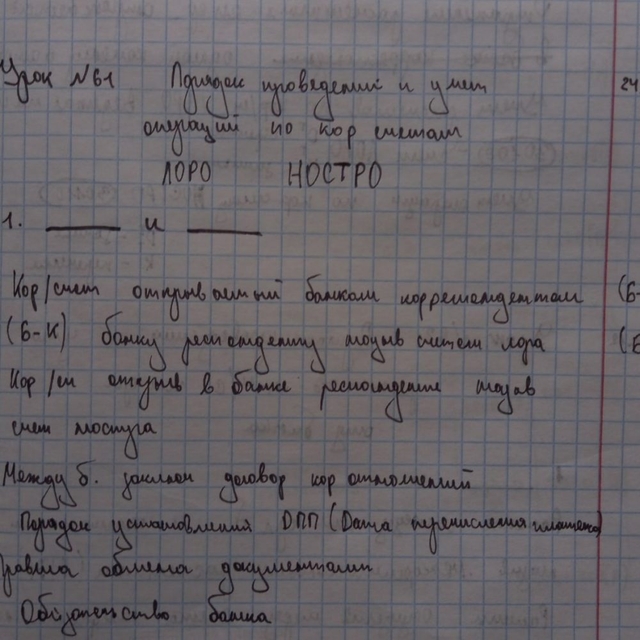 Урок №61 Порядок проведения и учет 24
операций по кор счетам
ЛОРО НОСТРО
1. ____ и ____
Кор/счет открываемый банком корреспондентом (Б-
(Б-К) банку респонденту назыв счетом лоро (Б
Кор/сч открыв в банке респонденте назыв
счет ностро
Между б. заключ договор кор отношений
Порядок установления ДПП (Дата перечисления платежа)
равила обмена документами
Обязательство банка